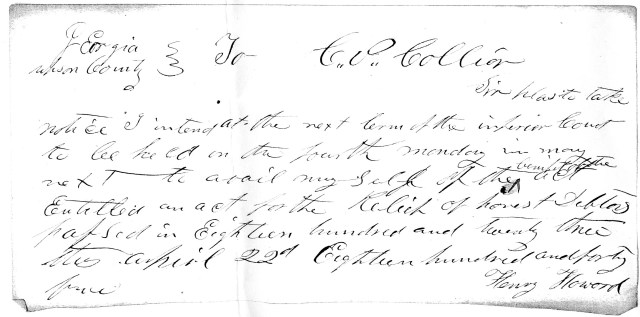 Georgia } To C. P. Collier
upson County }
Sir please to take
notice I intend at the next term of the inferior Court
to be held on the fourth monday in may
next to avail my self of the benifit of the act
Entitled an act for the Relief of honest Debtors
passed in Eighteen hundred and twenty three
this april 22d Eighteen hundred and forty
five Henry Howard